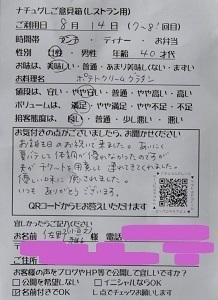 ナチュグレご意見箱(レストラン用)
ご利用日 8月14日(7~8回目)
時間帯 ランチ・ディナー・お弁当
性別 女性 男性 年齢 40才代
お味は、美味しい・普通・あまり美味しくない・まずい
お料理名 ポテトクリームグラタン
値段は、安い・やや安い・普通・やや高い・高い
ボリュームは、満足・やや満足・やや不足・不足
担客態度は、良い・普通・少し悪い・悪い
お気付きの点がございましたら、お聞かせください
お朔日のお祝いに来ました。あいにく
夏バテして体調が優れなかったのですが
夫がチケットを用意して連れてきてくれました。
優しい味に癒されました。
いつもありがとうございます。
QRコードからもお答えいただけます
宜しかったらご記入ください
お名前 様 電話
ご住所
お客様の声をブログやHP等で公開して宜しいですか?
公開を希望しない イニシャルならOK
名前付きでOK レ点でチェックお願いします